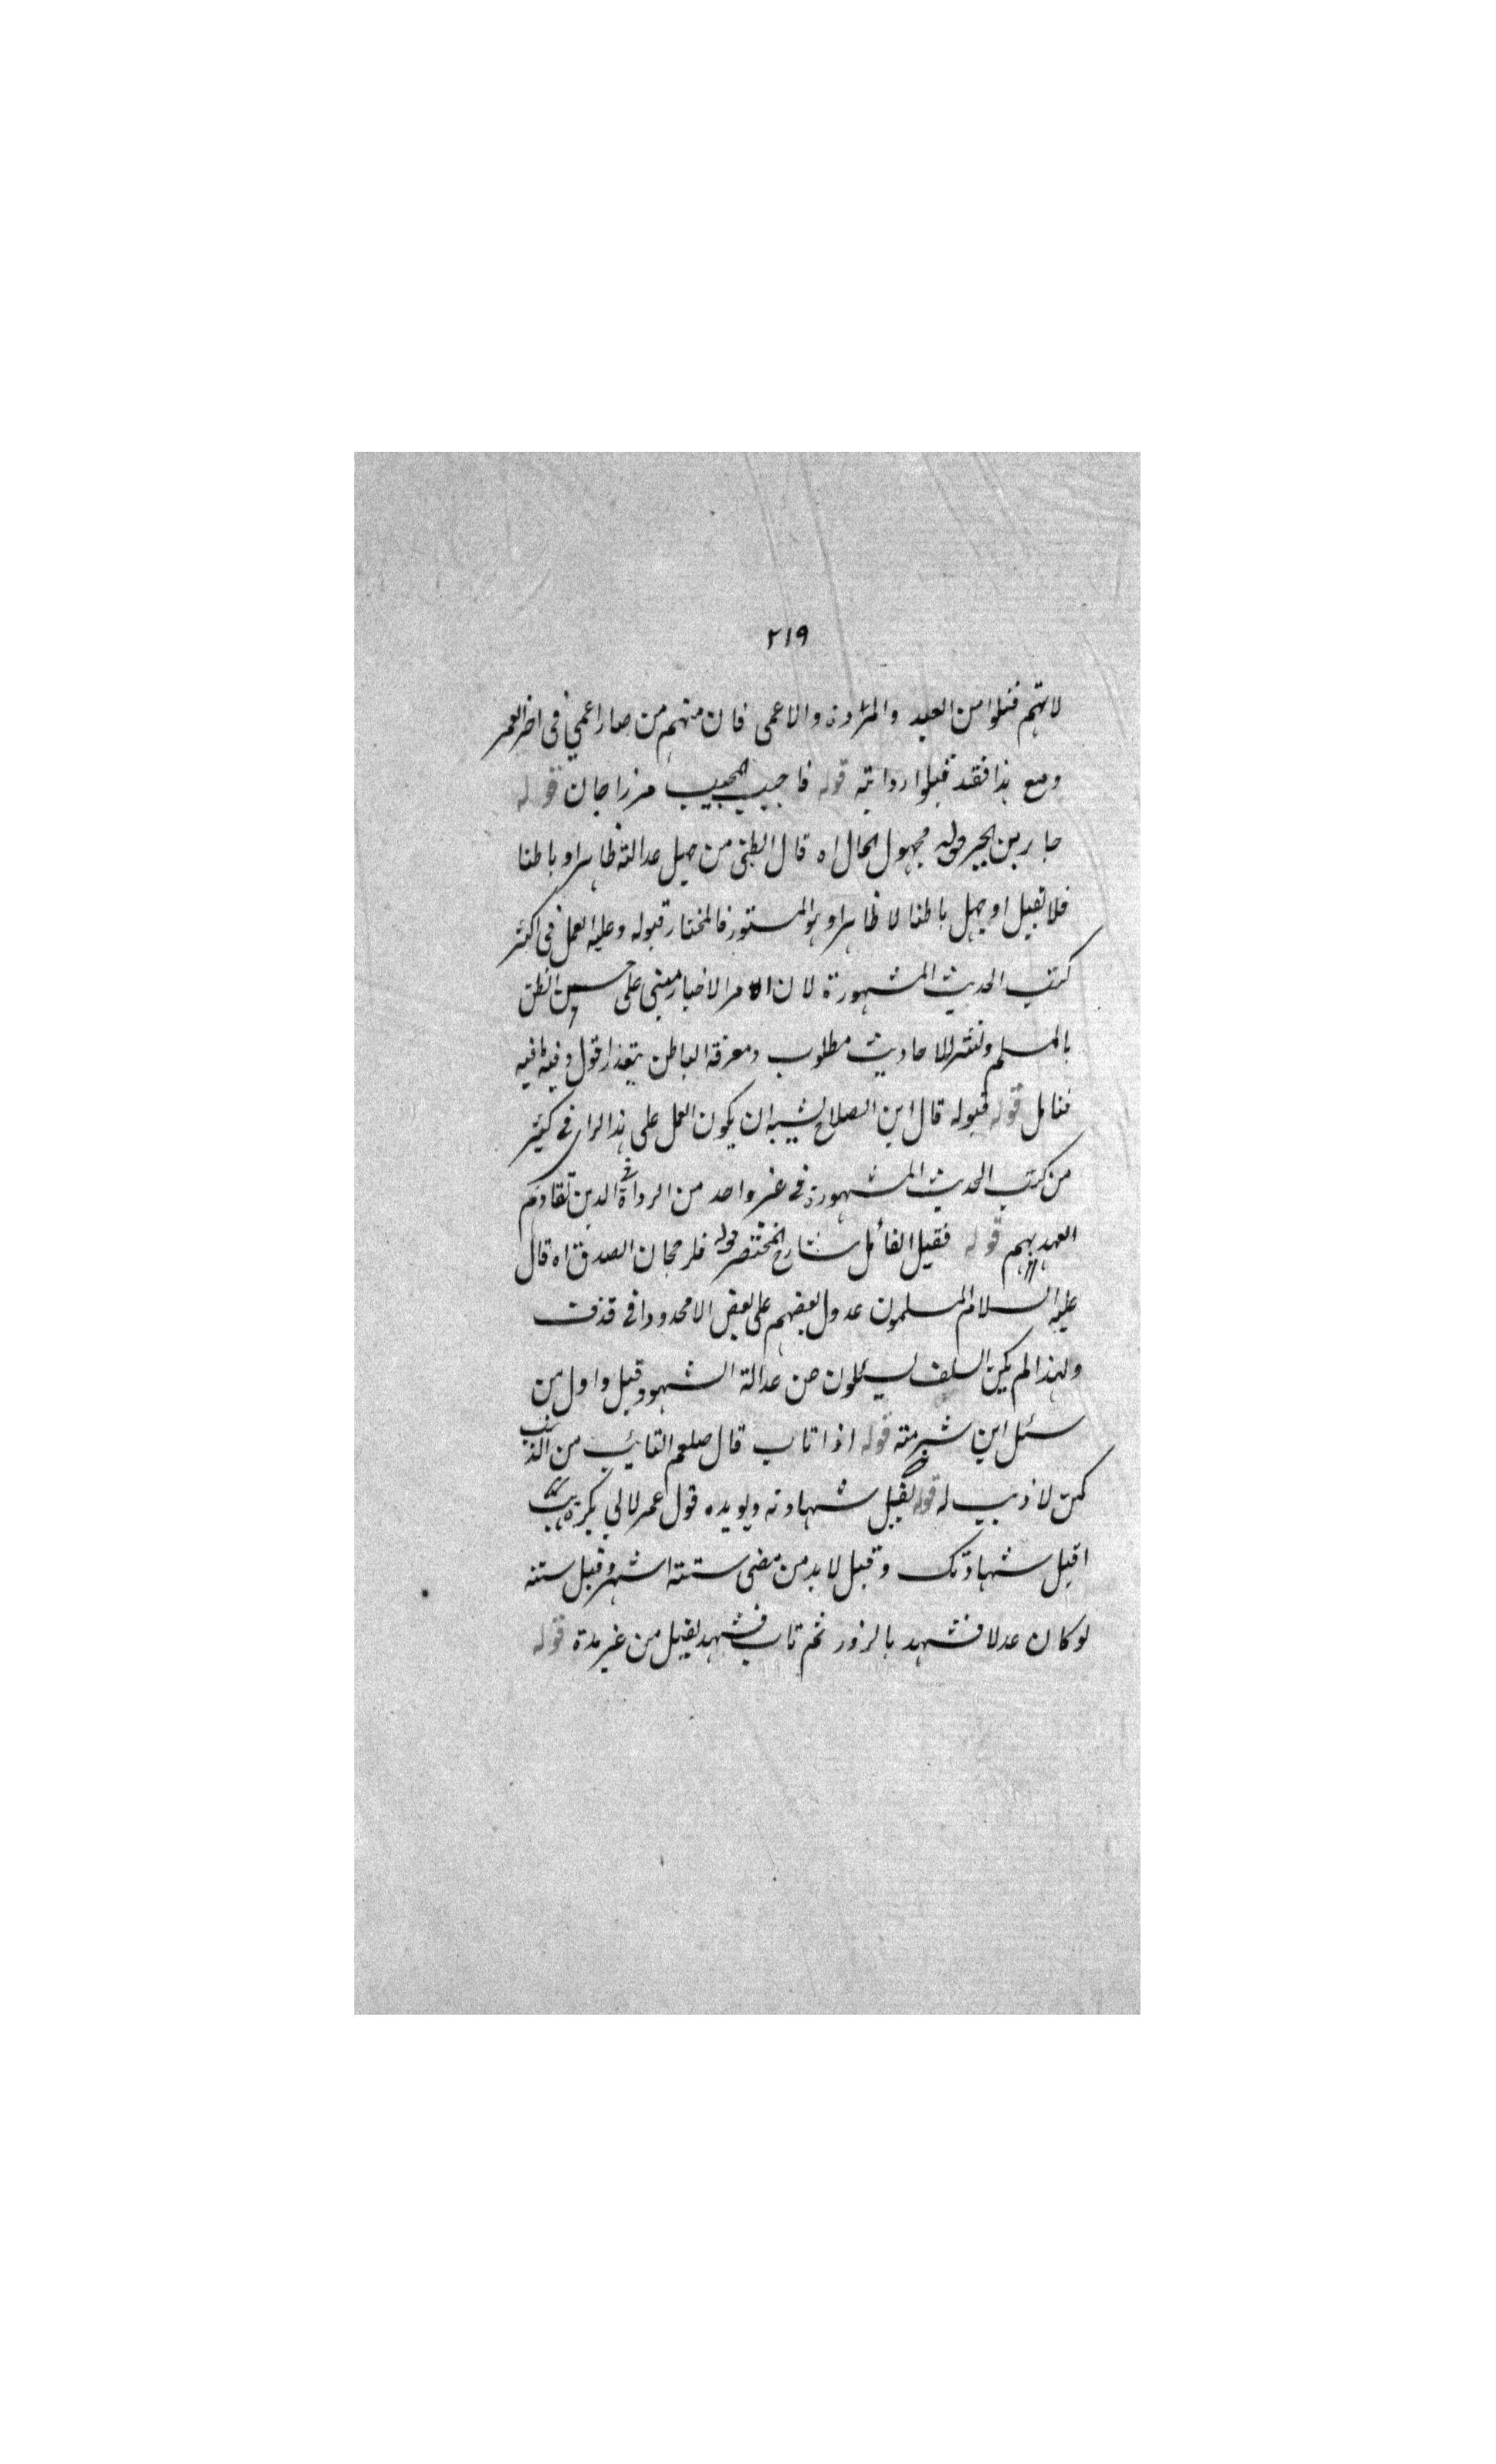 ٢١٩
لانهم قبلوا من العبد والمراة والاعمى فان منهم من صار اعمى فى اخر العمر
ومع هذا فقد قبلوا روايته قوله فاجيب المجيب مرزا جان قوله
جار بن قوله مجهول الحال اه قال الطيبى من جهل عدالته ظاهرا وباطنا
فلا تقبل او جهل باطنا لا ظاهرا وهو المستور فالمختار قبوله وعليه العمل فى اكثر
كتب الحديث المشهورة لان امر الاخبار مبنى على حسن الظن
بالمسلم ونشر الاحاديث مطلوب ومعرفة الباطن يتعذر اقول وفيه ما فيه
فتامل قوله قبوله قال ابن الصلاح يشبه ان يكون العمل على هذا الراى فى كثير
من كتب الحديث المشهورة فى غير واحد من الرواة الذين تقادم
العهد بهم قوله فقيل القائل شارح المختصر قوله فلرجحان الصدق اه قال
عليه السلام المسلمون عدول بعضهم على بعض الا محدودا فى قذف
ولهذا لم يكن السلف يسئلون من عدالة الشهود وقيل واول من
سئل ابن شبرمته قوله اذا تاب قال صلعم التائب من الذنب
كمن لا ذنب له قوله تقبل شهادته ويويده قول عمر لابى بكرة تب
اقبل شهادتك وقيل لا بد من مضى ستته اشهر وقيل سنته
لو كان عدلا فشهد بالزور ثم تاب فشهد تقبل من غير مدة قوله